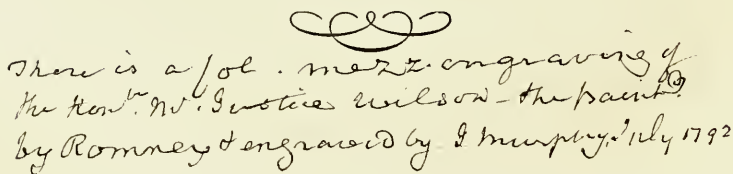 There is a fol. mezz. engraving of
the Honble. Mr. Justice Wilson - the paintg.
by Romney & engraved by J Murphy, July 1792